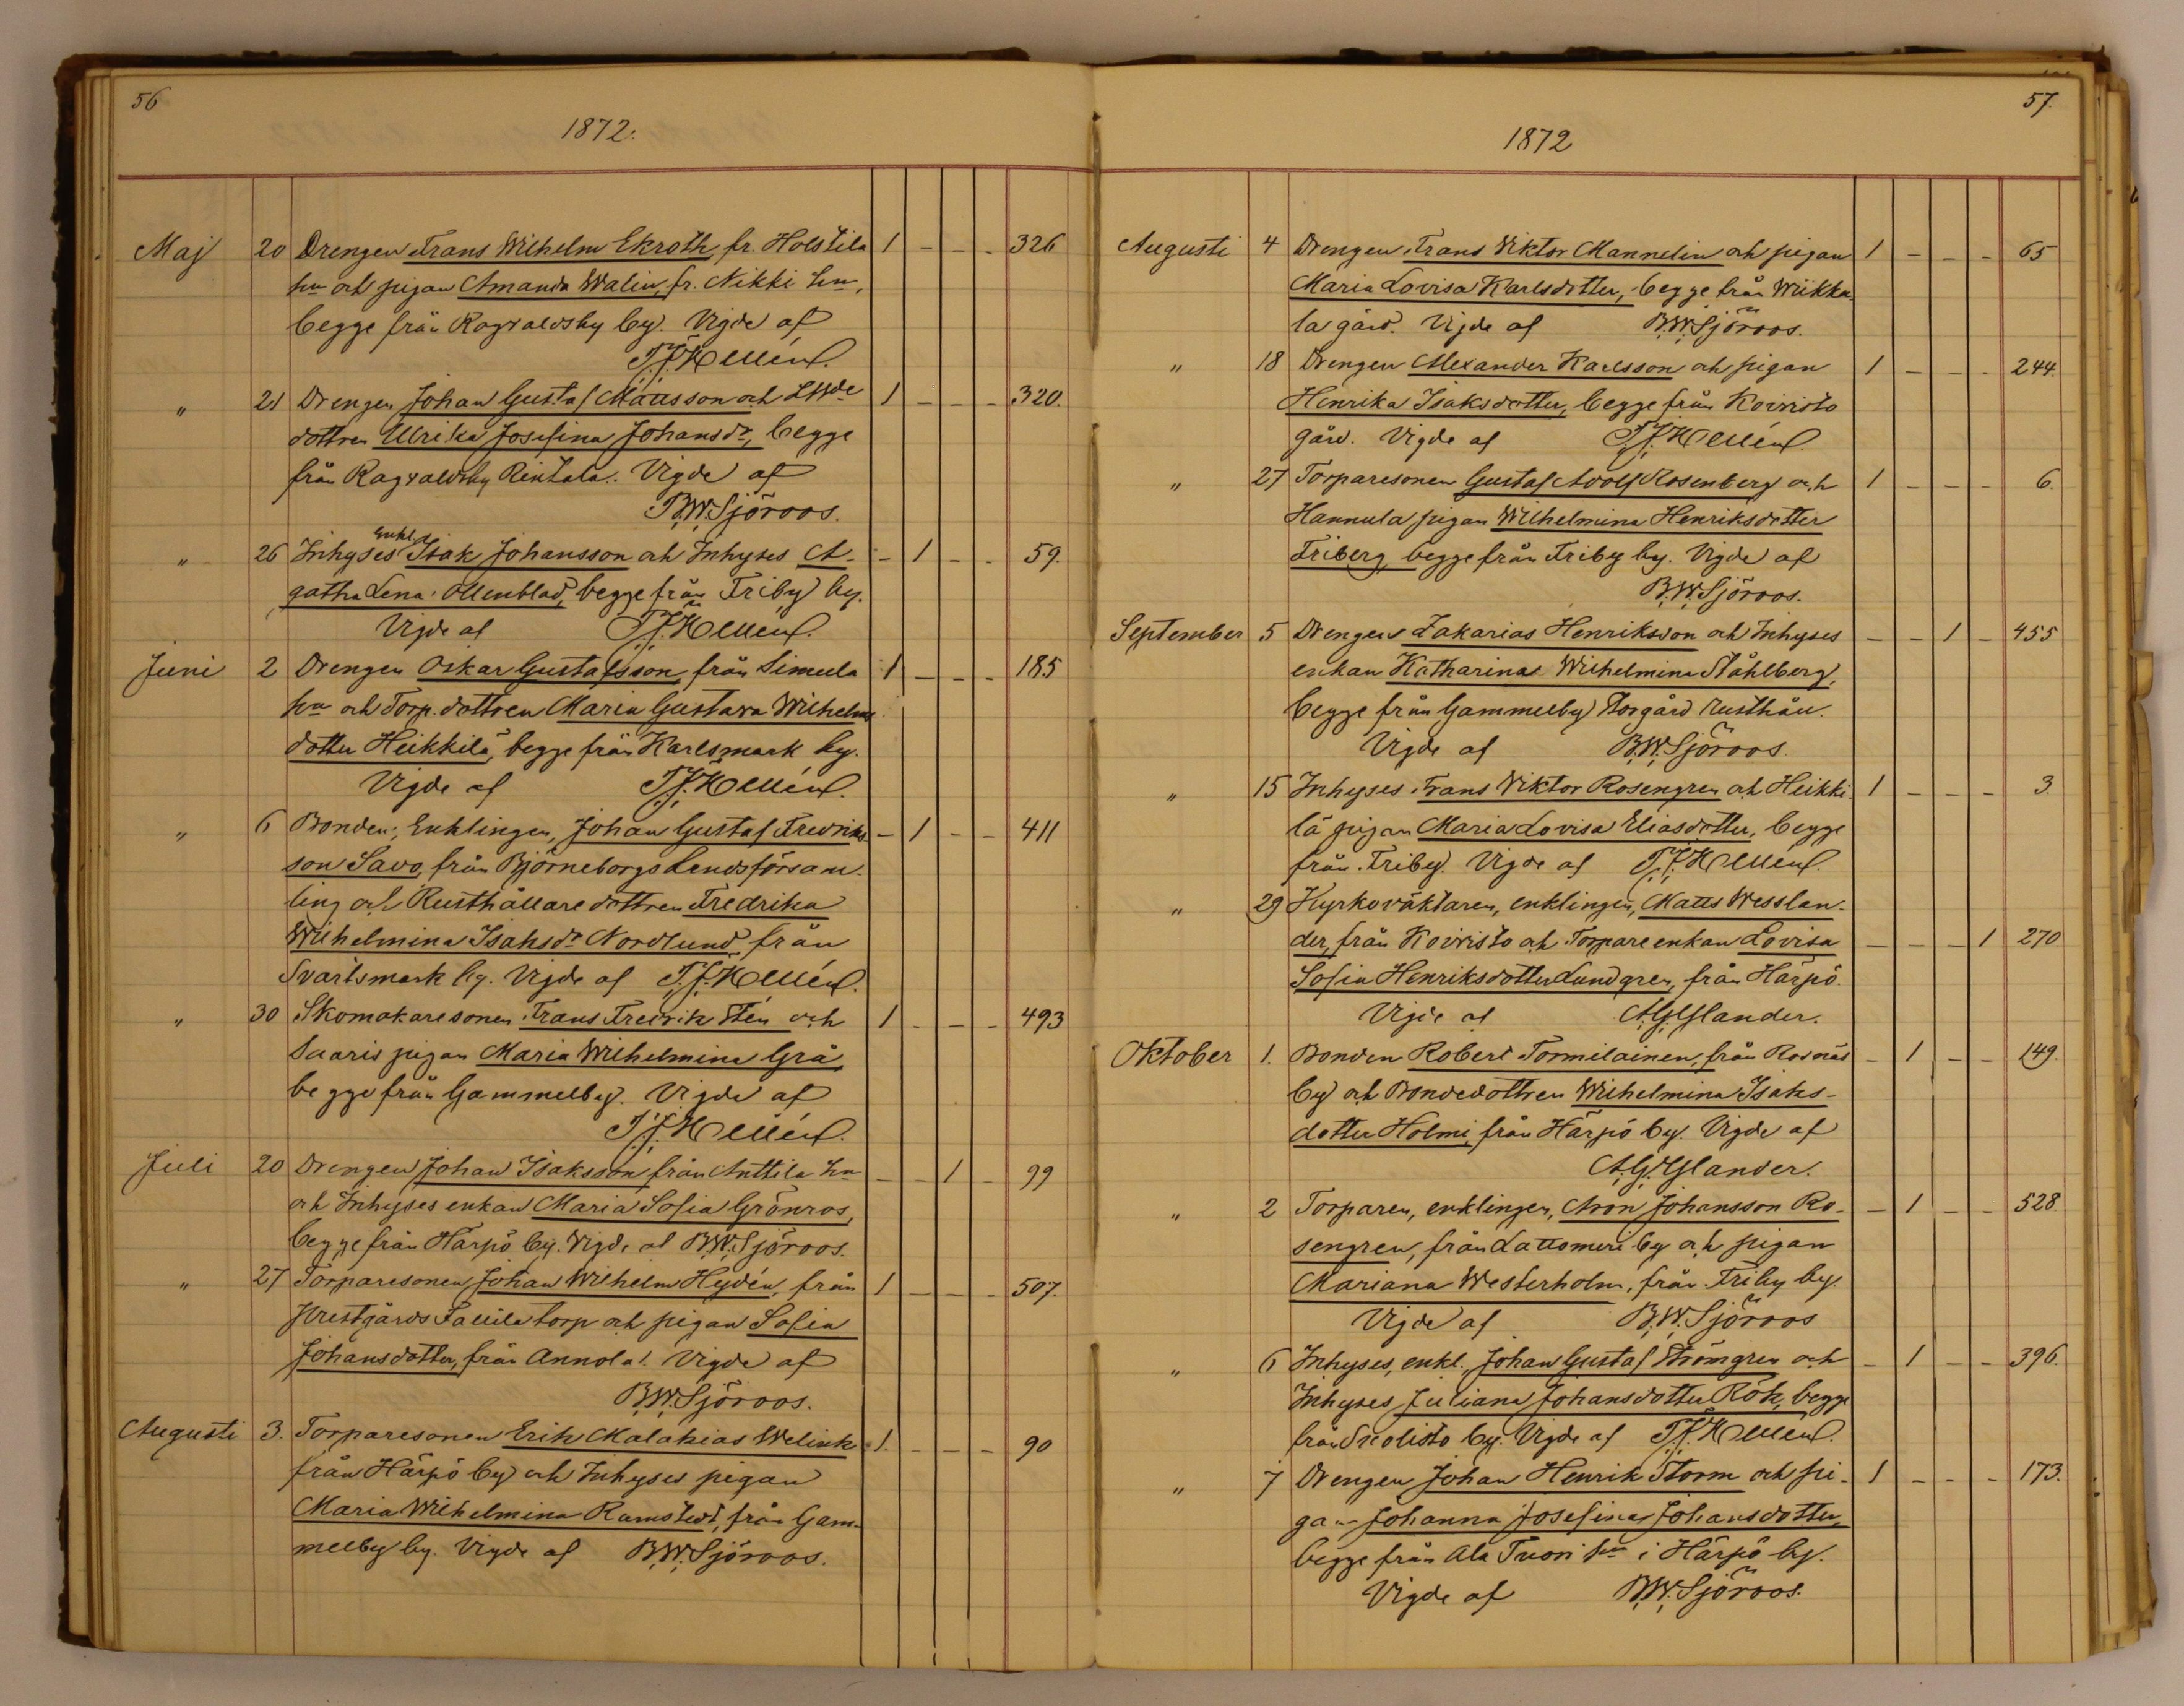 56
1872.
Maj 20 Drengen Frans Wilhelm Ekroth, fr. Holstila 1 - - - 326
hn och pigan Amanda Walin, fr. Nikki hn,
begge från Ragvaldsby by. Vigde af
T.J. Hellén.
" 21 Drengen Johan Gustaf Mattsson och
dottren Ulrika Josefina Johansdr, begge 1 - - - 320.
från Ragvaldsby Rintala. Vigde af
B.W. Sjöroos.
" 26 Inhyses enkl. Isak Johansson och Inhyses A- - 1 - - 59.
gatha Lena Ollenblad, begge från Friby by.
Vigde af T.J. Hellén.
Juni 2 Drengen Oskar Gustafsson, från Simula 1 - - - 185
hn och Torp. dottren Maria Gustava Wilhelms
dotter Heikkilä, begge från Karlsmark by.
Vigde af T.J. Hellén.
" 6 Bonden, Enklingen, Johan Gustaf Fredriks- - 1 - - 411
son Savo, från Björneborgs Landsförsam-
ling och Rusthållare dottren Fredrika
Wilhelmina Isaksdr Nordlund, från
Svartsmark by. Vigde af T.J. Hellén.
" 30 Skomakaresonen Frans Fredrik Stén och 1 - - - 493
Saaris pigan Maria Wilhelmina Grå,
begge från Gammelby. Vigde af
T.J. Hellén.
Juli 20 Drengen Johan Isaksson från Anttila hn - - 1 - 99
och Inhyses enkan Maria Sofia Grönros,
begge från Härpö by. Vigde af B.W. Sjöroos.
" 27 Torparesonen Johan Wilhelm Heydén, från 1 - - - 507.
Prestgårds torp och pigan Sofia
Johansdotter, från Annola. Vigde af
B.W. Sjöroos.
Augusti 3. Torparesonen Erik Malakias Welink 1. - - - 90
från Härpö by och Inhyses pigan
Maria Wilhelmina Ramstedt, från Gam-
melby by. Vigde af B.W. Sjöroos.
57.
1872
Augusti 4 Drengen Frans Viktor Mannelin och pigan 1 - - - 65
Maria Lovisa Karlsdotter, begge från Wiikka-
la gård. Vigde af B.W. Sjöroos.
" 18 Drengen Alexander Karlsson och pigan 1 - - - 244.
Henrika Isaksdotter, begge från Koivisto
gård. Vigde af T.J. Hellén.
" 27 Torparesonen Gustaf Adolf Rosenberg och 1 - - - 6.
Hannula pigan Wilhelmina Henriksdotter
Friberg, begge från Friby by. Vigde af
B.W. Sjöroos.
September 5 Drengen Zakarias Henriksson och Inhyses - - 1 - 455
enkan Katharina Wilhelmina Ståhlberg,
begge från Gammelby Storgård rusthåll.
Vigde af B.W. Sjöroos.
" 15 Inhyses Frans Viktor Rosengren och Heikki- 1 - - - 3.
lä pigan Maria Lovisa Eliasdotter, begge
från Friby. Vigde af T.J. Hellén.
" 29 Kyrkoväktaren, enklingen, Matts Wesslan-
der, från Koivisto och Torpare enkan Lovisa - - - 1 270
Sofia Henriksdotter Lundgren, från Härpö.
Vigde af A.G. Ylander.
Oktober 1. Bonden Robert Tormilainen, från Rosnäs - 1 - - 149.
by och Bondedottren Wilhelmina Isaks-
dotter Holmi, från Härpö by. Vigde af
A.G. Ylander.
" 2 Torparen, enklingen, Aron Johansson Ro- - 1 - - 528
sengren, från Lattomeri by och pigan
Mariana Westerholm, från Friby by.
Vigde af B.W. Sjöroos
" 6 Inhyses, enkl., Johan Gustaf Strömgren och - 1 - - 396.
Inhyses Juliana Johansdotter Rök, begge
från Sucolisto by. Vigde af T.J. Hellén.
" 7 Drengen Johan Henrik Storm och pi- 1 - - - 173.
gan Johanna Josefina Johansdotter,
begge från Ala Tuori hn i Härpö by.
Vigde af B.W. Sjöroos.